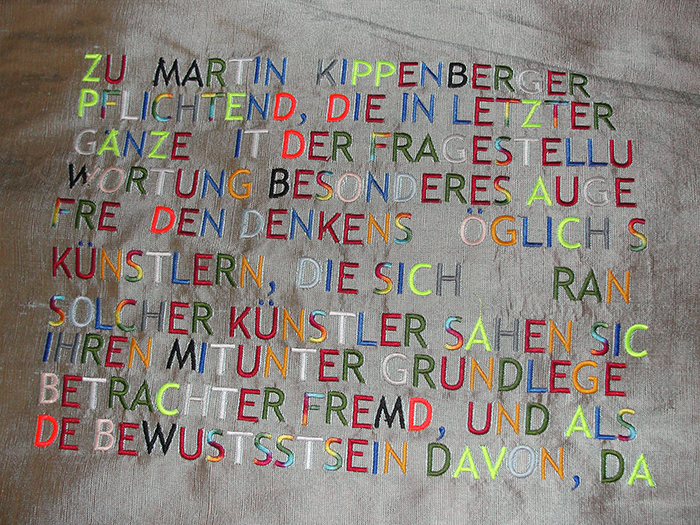 ZU MARTIN KIPPENBERGER
PFLICHTEND, DIE IN LETZTER
GÄNZE IT DER FRAGESTELLU
WORTUNG BESONDERES AUGE
FRE DEN DENKENS ÖGLICH S
KÜNSTLERN, DIE SICH RAN
SOLCHER KÜNSTLER SAHEN SIC
IHREN MITUNTER GRUNDLEGE
BETRACHTER FREMD, UND ALS
DE BEWUSTSSTSEIN DAVON, DA